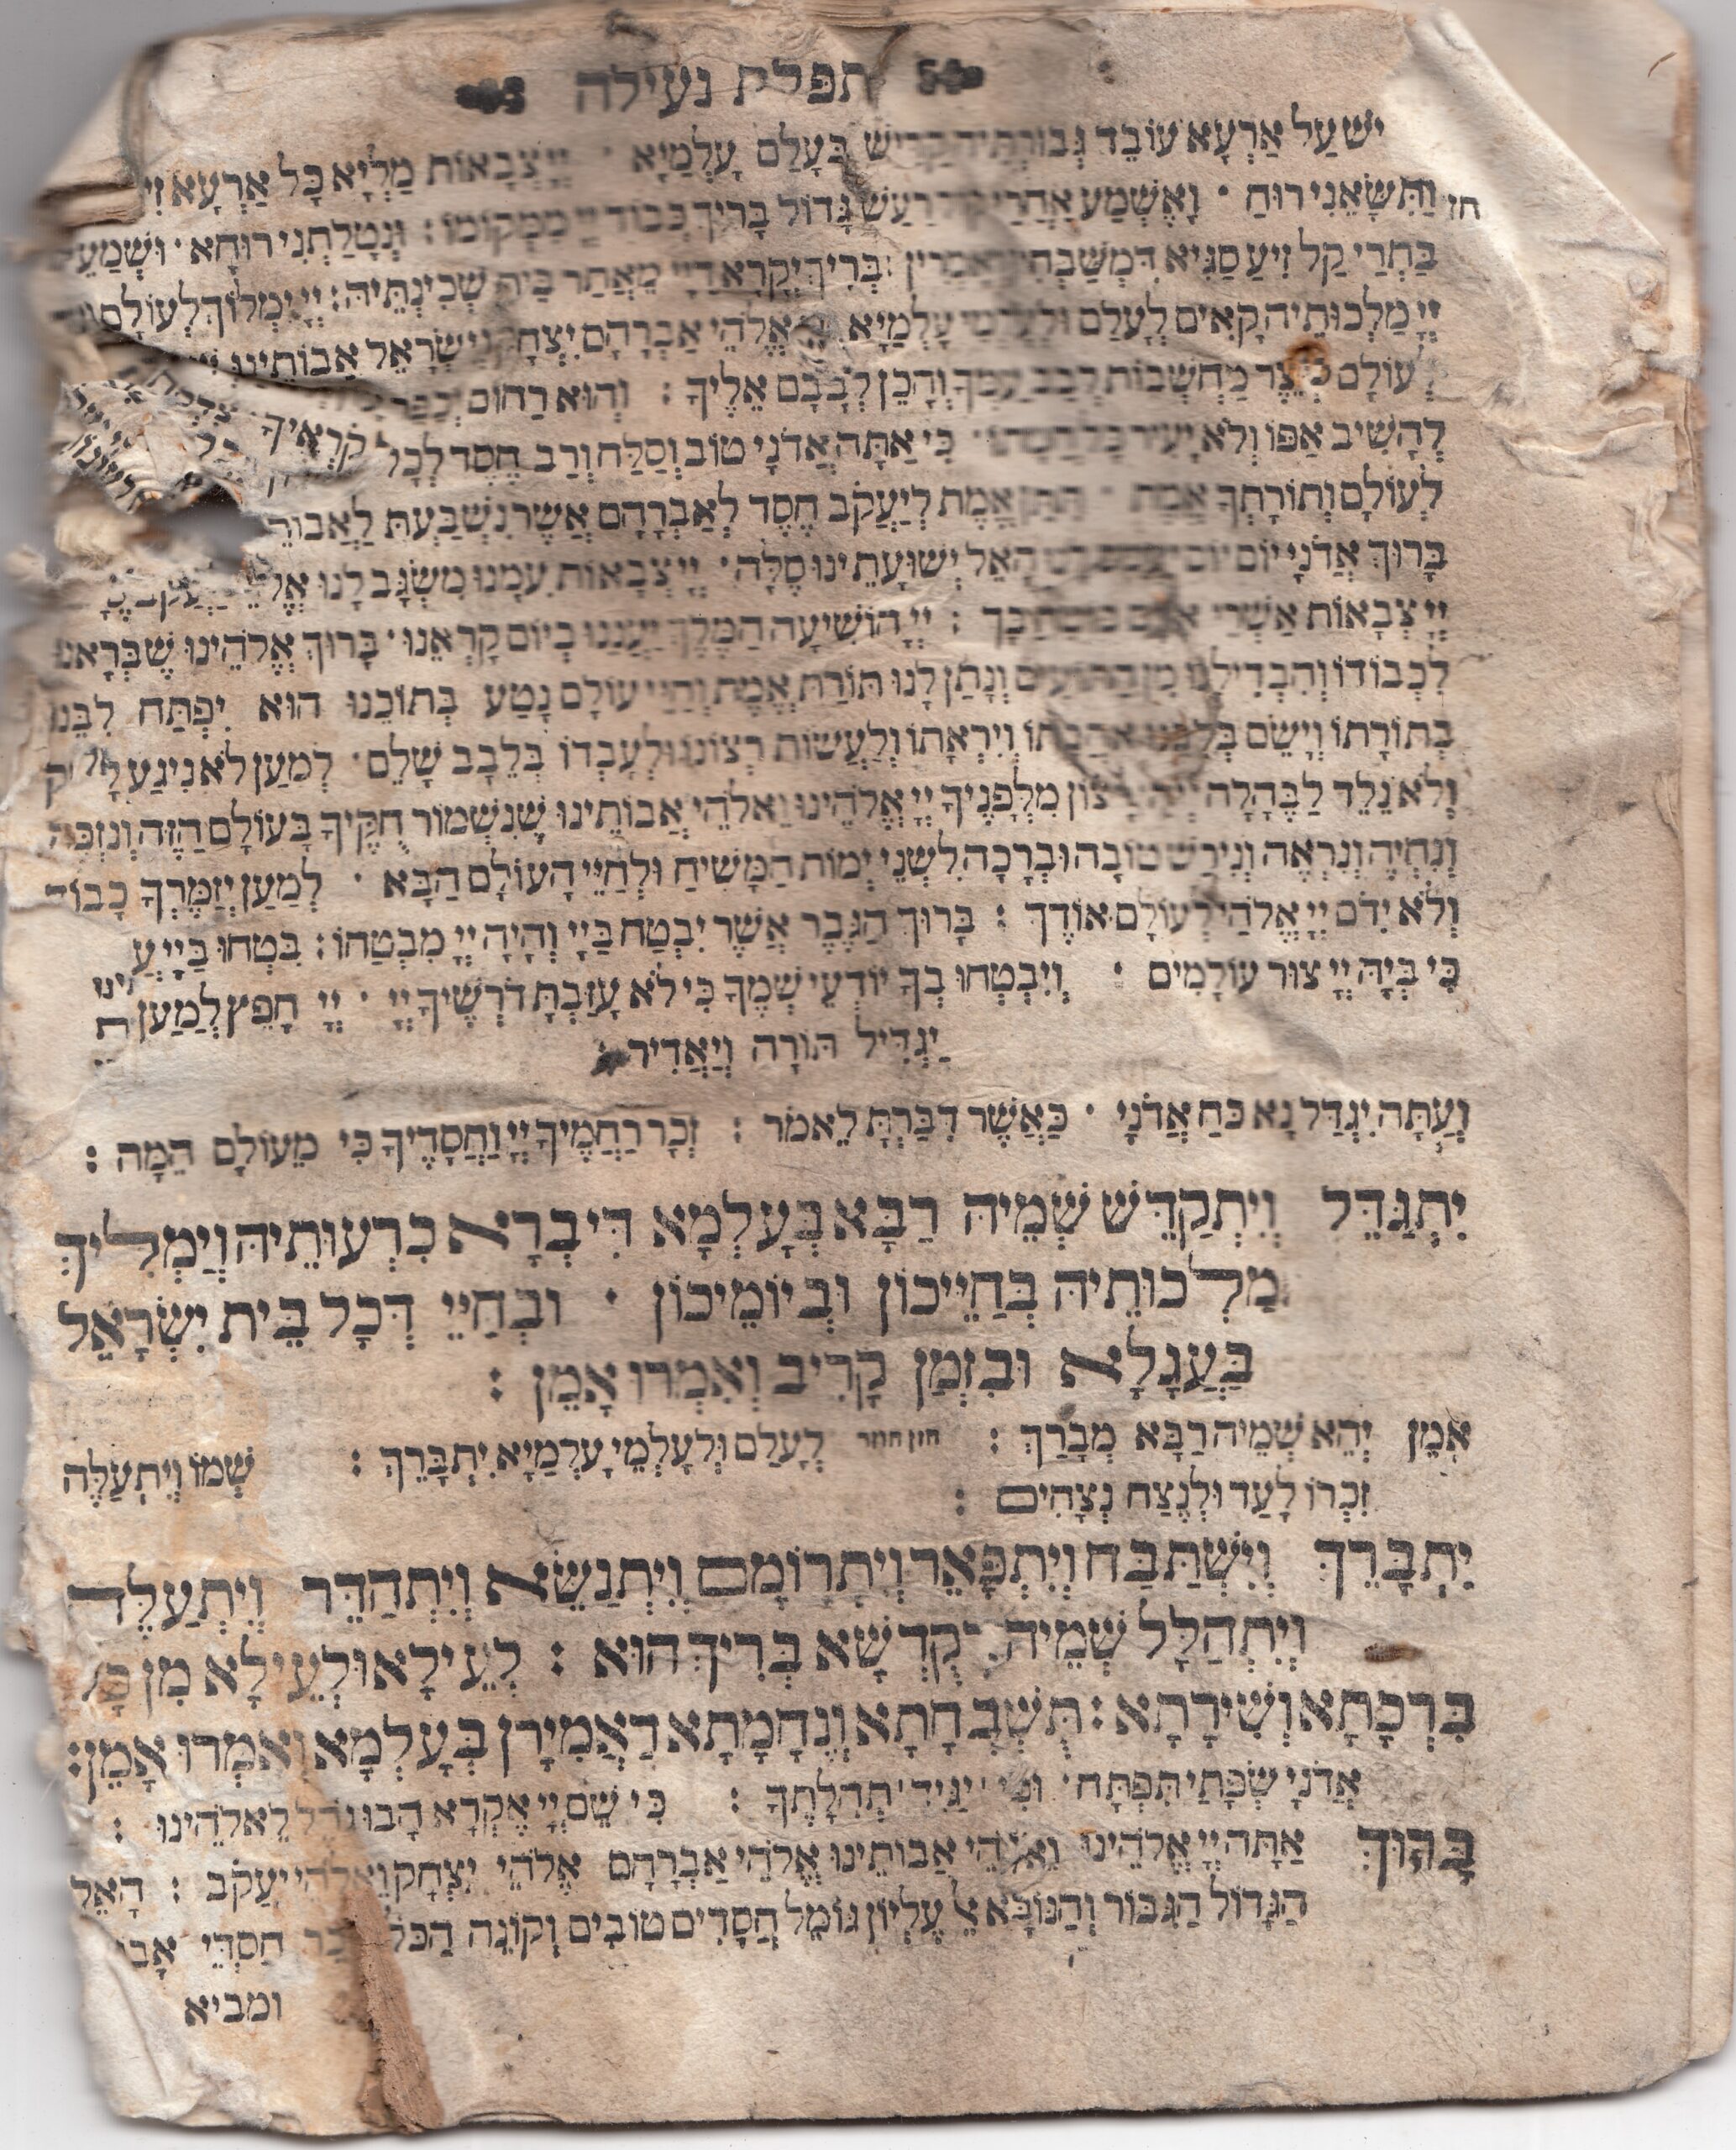 תפלת נעילה
יש עַל אַרְעָא עוֹבֵד גְּבוּרְתֵּיהּ קַדִּישׁ בְּעָלַם עָלְמַיָּא · יְיָ צְבָאוֹת מַלְיָא כָּל אַרְעָא
וַתִּשָּׂאֵנִי רוּחַ · וָאֶשְׁמַע אַחֲרַי קוֹל רַעַשׁ גָּדוֹל בָּרוּךְ כְּבוֹד יְיָ מִמְּקוֹמוֹ : וּנְטָלַתְנִי רוּחָא · וּשְׁמַעֵית
בַּתְרַי קַל זִיעַ סַגִּיא דִּמְשַׁבְּחִין וְאָמְרִין : בְּרִיךְ יְקָרָא דַיְיָ מֵאֲתַר בֵּית שְׁכִינְתֵּיהּ : יְיָ יִמְלוֹךְ לְעוֹלָם
יְיָ מַלְכוּתֵיהּ קָאִים לְעָלַם וּלְעָלְמֵי עָלְמַיָּא יְיָ אֱלֹהֵי אַבְרָהָם יִצְחָק וְיִשְׂרָאֵל אֲבוֹתֵינוּ
לְעוֹלָם לְיֵצֶר מַחְשְׁבוֹת לְבַב עַמֶּךָ וְהָכֵן לְבָבָם אֵלֶיךָ : וְהוּא רַחוּם יְכַפֵּר
לְהָשִׁיב אַפּוֹ וְלֹא יָעִיר כָּל חֲמָתוֹ · כִּי אַתָּה אֲדֹנָי טוֹב וְסַלָּח וְרַב חֶסֶד לְכָל קֹרְאֶיךָ
לְעוֹלָם וְתוֹרָתְךָ אֱמֶת · תִּתֵּן אֱמֶת לְיַעֲקֹב חֶסֶד לְאַבְרָהָם אֲשֶׁר נִשְׁבַּעְתָּ לַאֲבוֹתֵ
בָּרוּךְ אֲדֹנָי יוֹם יוֹם יַעֲמָס לָנוּ הָאֵל יְשׁוּעָתֵינוּ סֶלָה · יְיָ צְבָאוֹת עִמָּנוּ מִשְׂגָּב לָנוּ
יְיָ צְבָאוֹת אַשְׁרֵי אָדָם בּוֹטֵחַ בָּךְ : יְיָ הוֹשִׁיעָה הַמֶּלֶךְ יַעֲנֵנוּ בְיוֹם קָרְאֵנוּ · בָּרוּךְ אֱלֹהֵינוּ שֶׁבְּרָאָנוּ
לִכְבוֹדוֹ וְהִבְדִּילָנוּ מִן הַתּוֹעִים וְנָתַן לָנוּ תּוֹרַת אֱמֶת וְחַיֵּי עוֹלָם נָטַע בְּתוֹכֵנוּ הוּא יִפְתַּח לִבֵּנוּ
בְּתוֹרָתוֹ וְיָשֵׂם בְּלִבֵּנוּ אַהֲבָתוֹ וְיִרְאָתוֹ וְלַעֲשׂוֹת רְצוֹנוֹ וּלְעָבְדוֹ בְּלֵבָב שָׁלֵם · לְמַעַן לֹא נִיגַע לָרִיק
וְלֹא נֵלֵד לַבֶּהָלָה יְהִי רָצוֹן מִלְּפָנֶיךָ יְיָ אֱלֹהֵינוּ וֵאלֹהֵי אֲבוֹתֵינוּ שֶׁנִּשְׁמוֹר חֻקֶּיךָ בָּעוֹלָם הַזֶּה וְנִזְכֶּה
וְנִחְיֶה וְנִרְאֶה וְנִירַשׁ טוֹבָה וּבְרָכָה לִשְׁנֵי יְמוֹת הַמָּשִׁיחַ וּלְחַיֵּי הָעוֹלָם הַבָּא · לְמַעַן יְזַמֶּרְךָ כָבוֹד
וְלֹא יִדֹּם יְיָ אֱלֹהַי לְעוֹלָם אוֹדֶךָ : בָּרוּךְ הַגֶּבֶר אֲשֶׁר יִבְטַח בַּיְיָ וְהָיָה יְיָ מִבְטַחוֹ : בִּטְחוּ בַיְיָ
כִּי בְּיָהּ יְיָ צוּר עוֹלָמִים : וְיִבְטְחוּ בְךָ יוֹדְעֵי שְׁמֶךָ כִּי לֹא עָזַבְתָּ דֹרְשֶׁיךָ יְיָ · יְיָ חָפֵץ לְמַעַן
יַגְדִּיל תּוֹרָה וְיַאְדִּיר :
וְעַתָּה יִגְדַּל נָא כֹּחַ אֲדֹנָי · כַּאֲשֶׁר דִּבַּרְתָּ לֵאמֹר : זְכֹר רַחֲמֶיךָ יְיָ וַחֲסָדֶיךָ כִּי מֵעוֹלָם הֵמָּה :
יִתְגַּדֵּל וְיִתְקַדֵּשׁ שְׁמֵיהּ רַבָּא בְּעָלְמָא דִּי בְרָא כִרְעוּתֵיהּ וְיַמְלִיךְ
מַלְכוּתֵיהּ בְּחַיֵּיכוֹן וּבְיוֹמֵיכוֹן · וּבְחַיֵּי דְּכָל בֵּית יִשְׂרָאֵל
בַּעֲגָלָא וּבִזְמַן קָרִיב וְאִמְרוּ אָמֵן :
אָמֵן יְהֵא שְׁמֵיהּ רַבָּא מְבָרַךְ : חזן חוזר לְעָלַם וּלְעָלְמֵי עָלְמַיָּא יִתְבָּרֵךְ : שְׁמוֹ וְיִתְעַלֶּה
זִכְרוֹ לָעַד וּלְנֶצַח נְצָחִים :
יִתְבָּרֵךְ וְיִשְׁתַּבַּח וְיִתְפָּאֵר וְיִתְרוֹמָם וְיִתְנַשֵּׂא וְיִתְהַדֵּר וְיִתְעַלֶּה
וְיִתְהַלָּל שְׁמֵיהּ דְּקֻדְשָׁא בְּרִיךְ הוּא : לְעֵילָא וּלְעֵילָא מִן כָּל
בִּרְכָתָא וְשִׁירָתָא : תֻּשְׁבְּחָתָא וְנֶחָמָתָא דַּאֲמִירָן בְּעָלְמָא וְאִמְרוּ אָמֵן :
אֲדֹנָי שְׂפָתַי תִּפְתָּח · וּפִי יַגִּיד תְּהִלָּתֶךָ : כִּי שֵׁם יְיָ אֶקְרָא הָבוּ גֹדֶל לֵאלֹהֵינוּ :
בָּרוּךְ אַתָּה יְיָ אֱלֹהֵינוּ וֵאלֹהֵי אֲבוֹתֵינוּ אֱלֹהֵי אַבְרָהָם אֱלֹהֵי יִצְחָק וֵאלֹהֵי יַעֲקֹב : הָאֵל
הַגָּדוֹל הַגִּבּוֹר וְהַנּוֹרָא אֵל עֶלְיוֹן גּוֹמֵל חֲסָדִים טוֹבִים וְקוֹנֵה הַכֹּל חַסְדֵּי
ומביא